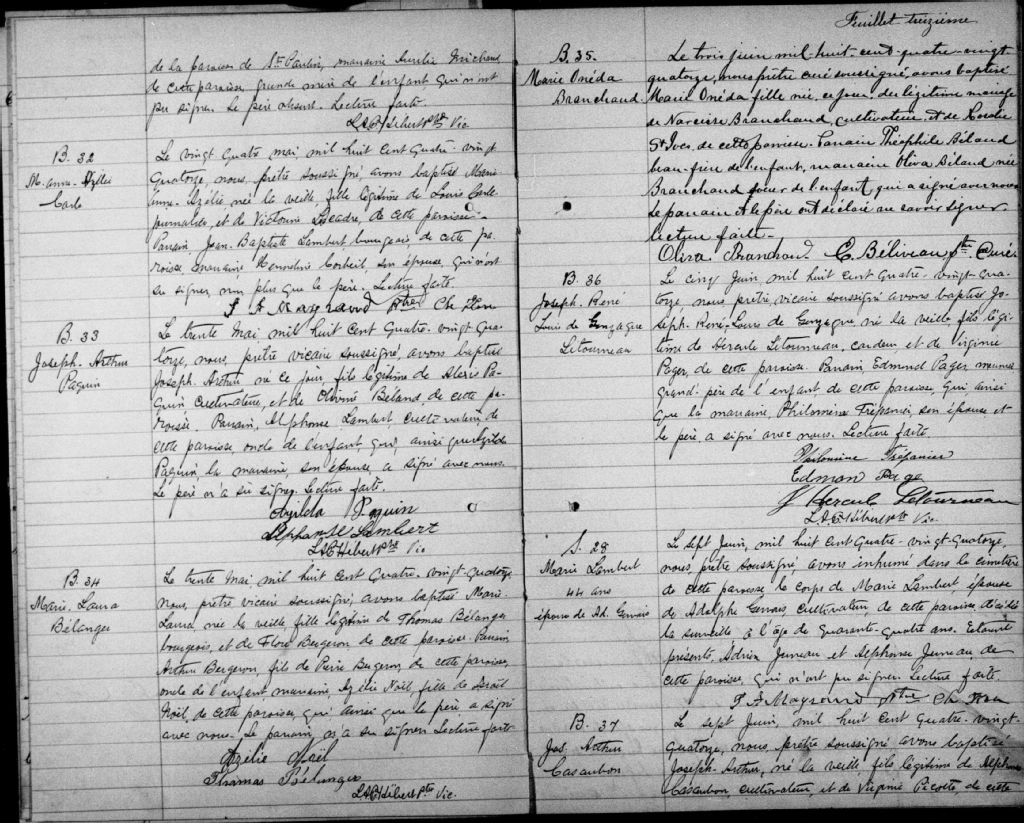 de la paroisse de St Paulin, marraine Aurélie Michaud
de cette paroisse, grande mère de l'enfant, qui n'ont
pu signer. Le père absent. Lecture faite.
L.A.E. Hébert ptre Vic.
B. 32
M. Anna-Azélie
Carle
Le vingt quatre mai mil huit cent quatre-vingt
quatorze, nous, prêtre soussigné, avons baptisé Marie
Anna-Azélie née la veille, fille légitime de Louis Carle
journalier, et de Victorine de cette paroisse.
Parrain, Jean-Baptiste Lambert bourgeois, de cette pa-
roisse, marraine Corbeil, son épouse, qui n'ont
su signer, non plus que le père. Lecture faite.
ptre
B. 33
Joseph-Arthur
Paquin
Le trente Mai mil huit cent quatre-vingt qua-
torze, nous, prêtre vicaire soussigné, avons baptisé
Joseph-Arthur né ce jour, fils légitime de Alexis Pa-
quin cultivateur, et de Olivine Béland de cette pa-
roisse. Parrain, Alphonse Lambert cultivateur, de
cette paroisse, oncle de l'enfant, qui, ainsi que Exilda
Paquin, la marraine son épouse, a signé avec nous.
Le père n'a su signer. Lecture faite.
Exilda Paquin
Alphonse Lambert
L.A.E. Hébert ptre Vic
B. 34
Marie-Laura
Bélanger
Le trente Mai mil huit cent quatre-vingt-quatorze
nous, prêtre vicaire soussigné, avons baptisé Marie-
Laura née la veille fille légitime de Thomas Bélanger
bourgeois, et de Flore Bergeron de cette paroisse. Parrain
Arthur Bergeron, fils de Pierre Bergeron de cette paroisse,
oncle de l'enfant marraine, Azélie Noël, fille de
Noël, de cette paroisse, qui ainsi que le père a signé
avec nous. Le parrain, n'a su signer. Lecture faite
Azélie Noël
Thomas Bélanger
L.A.E. Hébert ptre Vic.
Feuillet treizième
B. 35.
Marie Onéda
Branchaud
Le trois juin mil-huit-cent-quatre-vingt
quatorze, nous prêtre curé soussigné, avons baptisé
Marie Onéda fille née, ce jour, du légitime mariage
de Narcisse Branchaud, cultivateur, et de Rosalie
St Yves, de cette paroisse. Parrain Théophile Béland
beau-frère de l'enfant, marraine Oliva Béland née
Branchaud soeur de l'enfant, qui a signé avec nous
Le parrain et le père ont déclaré ne savoir signer.
Lecture faite.
Oliva Branchaud C. Béliveau, Ptre Curé
B. 36
Joseph-René
Louis de Gonzague
Létourneau
Le cinq Juin, mil huit cent quatre-vingt-qua-
torze nous prêtre, vicaire soussigné avons baptisé Jo-
seph-René-Louis de Gonzague, né la veille, fils légi-
time de Hercule Létourneau, cardeur et de Virginie
Pager, de cette paroisse. Parrain, Edmond Pager, meunier
grand-père de l'enfant, de cette paroisse, qui ainsi
que la marraine, Philomène Trépanier, son épouse et
le père, a signé avec nous. Lecture faite.
Philomène Trépanier
Edmon Page
J Hercule Létourneau
L.A.E. Hébert ptre Vic.
S. 28
Marie Lambert
44 ans
épouse de Ad. Gervais
Le sept Juin, mil huit cent quatre-vingt-quatorze,
nous, prêtre soussigné, avons inhumé dans le cimetière
de cette paroisse, le corps de Marie Lambert, épouse
de Adolphe Gervais, cultivateur de cette paroisse, décédée
la surveille à l'âge de quarante-quatre ans. Etaient
présents, Adrien Juneau et Alphonse Juneau, de
cette paroisse, qui n'ont pu signer. Lecture faite.
Ptre
B. 37
Jos. Arthur
Casaubon
Le sept Juin, mil huit cent quatre-vingt-
quatorze, nous, prêtre soussigné avons baptisé
Joseph-Arthur, né la veille, fils légitime de Alphonse
Casaubon cultivateur, et de Virginie Picotte, de cette